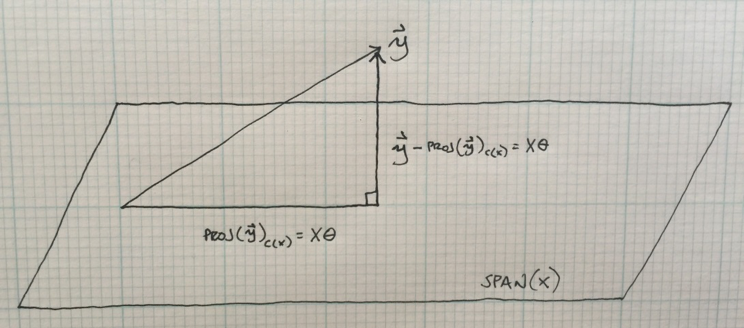 y⃗
y⃗ - PROJ(y⃗)C(X) = Xθ
PROJ(y⃗)C(X) = Xθ
SPAN(X)